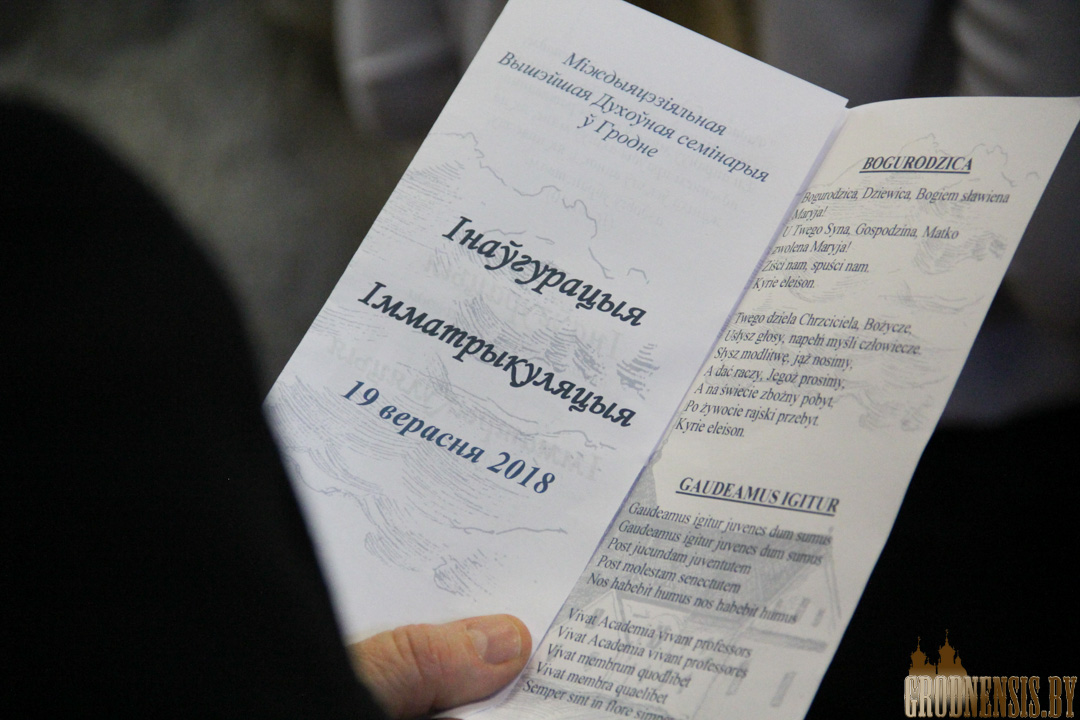 Міждыяцэзіяльная
Вышэйшая Духоўная семінарыя
ў Гродне
Інаўгурацыя
Імматрыкуляцыя
19 верасня 2018
BOGURODZICA
Bogurodzica, Dziewica, Bogiem sławiena
Maryja!
U Twego Syna, Gospodzina, Matko
zwolena Maryja!
Ziści nam, spuści nam.
Kyrie eleison.
Twego dziela Chrzciciela, Bożycze,
Usłysz głosy, napełń myśli człowiecze.
Słysz modlitwę, jąż nosimy,
A dać raczy, Jegoż prosimy,
A na świecie zbożny pobyt,
Po żywocie rajski przebyt.
Kyrie eleison.
GAUDEAMUS IGITUR
Gaudeamus igitur juvenes dum sumus
Gaudeamus igitur juvenes dum sumus
Post jucundam juventutem
Post molestam senectutem
Nos habebit humus nos habebit humus
Vivat Academia vivant professors
Vivat Academia vivant professores
Vivat membrum quodlibet
Vivat membra quaelibet
Semper sint in flore
GRODNENSIS.BY